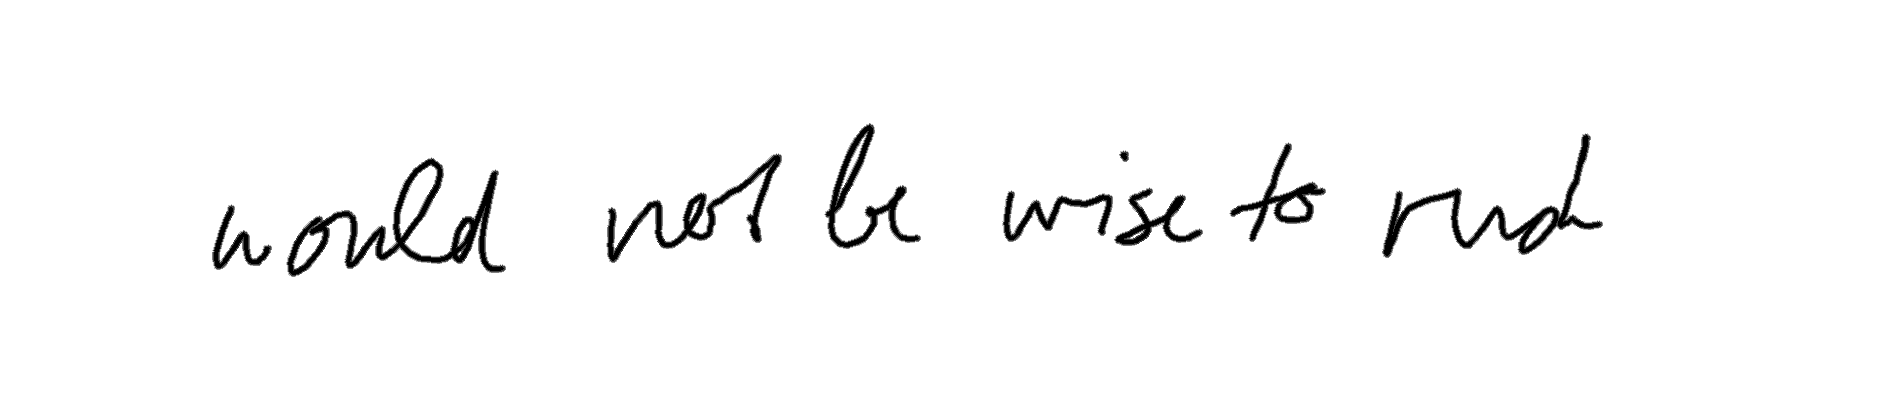 would not be wise to rush